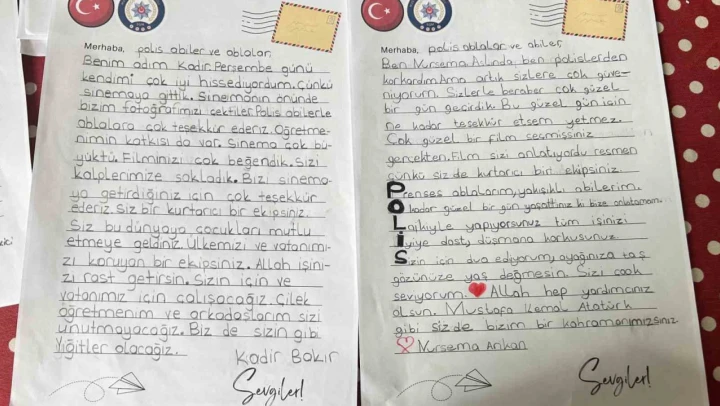 Merhaba, polis abiler ve ablalar.
Benim adım Kadir. Perşembe günü
kendimi çok iyi hissediyordum. Çünkü
sinemaya gittik. Sinemanın önünde
bizim fotoğrafımızı çektiler. Polis abilerle
ablalara çok teşekkür ederiz. Öğretme-
nimin katkısı da var. Sinema çok bü-
yüktü. Filminizi çok beğendik. Sizi
kalplerimize sakladık. Bizi sinema-
ya getirdiğiniz için çok teşekkür
ederiz. Siz bir kurtarıcı bir ekipsiniz.
Siz bu dünyaya çocukları mutlu
etmeye geldiniz. Ülkemizi ve vatanımı-
zı koruyan bir ekipsiniz. Allah işini-
zi rast getirsin. Sizin için ve
vatanımız için çalışacağız. Çilek
öğretmenim ve arkadaşlarım sizi
unutmayacağız. Biz de sizin gibi
yiğitler olacağız.
Kadir Bakır
Sevgiler!
Merhaba, polis ablalar ve abiler,
Ben Nursema. Aslında, ben polislerden
korkardım. Ama artık sizlere çok güve-
niyorum. Sizlerle beraber çok güzel
bir gün geçirdik. Bu güzel gün için
ne kadar teşekkür etsem yetmez.
Çok güzel bir film seçmişsiniz
gerçekten. Film sizi anlatıyordu resmen
çünkü siz de kurtarıcı bir ekipsiniz.
Prenses ablalarım, yakışıklı abilerim.
O kadar güzel bir gün yaşattınız ki bize anlatamam.
Layıkıyle yapıyorsunuz tüm işinizi
İyiye dost, düşmana korkusunuz
Sizin için dua ediyorum, ayağınıza taş
gözünüze yaş değmesin. Sizi çook
seviyorum. Allah hep yardımcınız
olsun. Mustafa Kemal Atatürk
gibi siz de bizim bir kahramanımızsınız
Nursema Arıkan
Sevgiler!